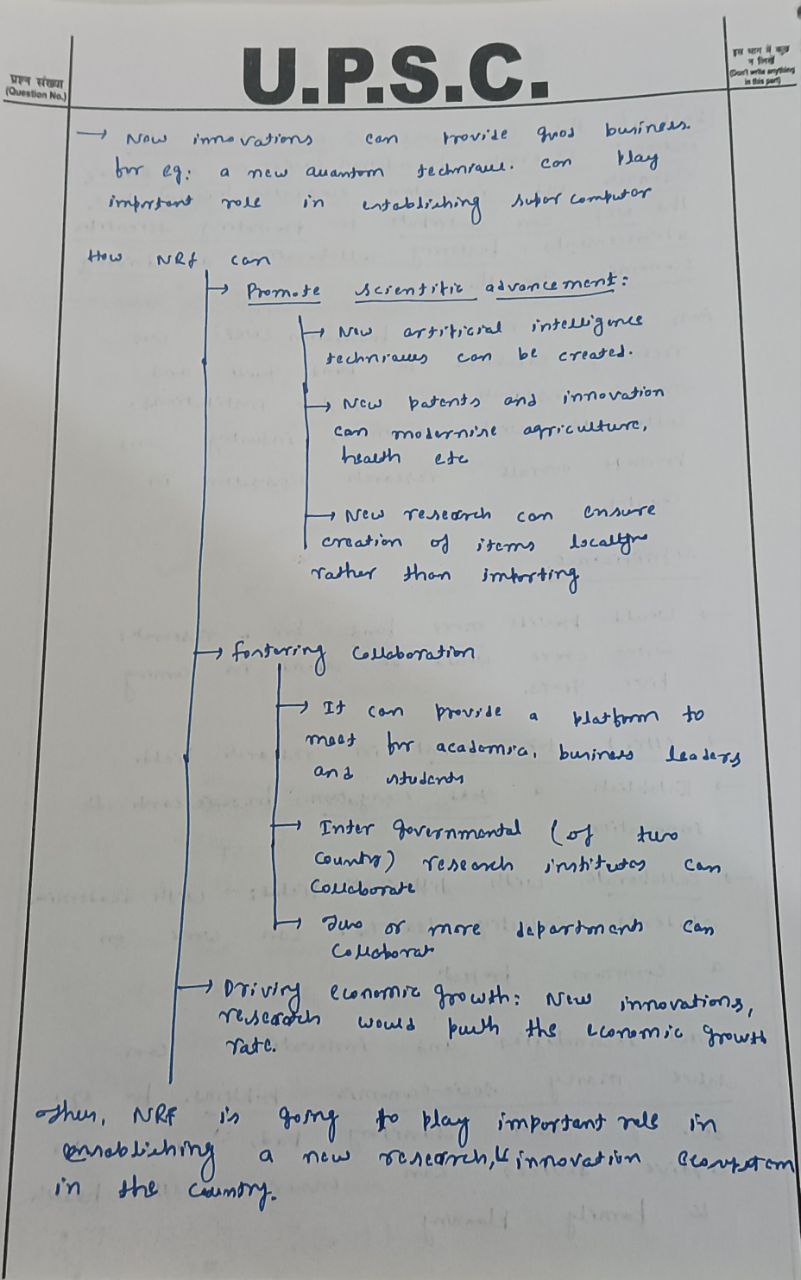 U.P.S.C.
प्रश्न संख्या
(Question No.)
इस भाग में कुछ
न लिखें
(Don't write anything
in this part)
→ New innovations can provide good business.
for eg: a new quantom technique. can play
important role in establishing super computor
How NRF can
→ Promote scientific advancement:
→ New artificial intelligence
techniques can be created.
→ New patents and innovation
can modernise agriculture,
health etc
→ New research can ensure
creation of items locally
rather than importing
→ Fostering Collaboration
→ It can provide a platform to
meet for academia, business leaders
and students
→ Inter governmental (of two
country) research institutes can
Collaborate
→ Two or more departments can
Collaborat
→ Driving economic growth: New innovations,
research would push the economic growth
rate.
Thus, NRF is going to play important role in
establishing a new research, & innovation ecosystem
in the country.